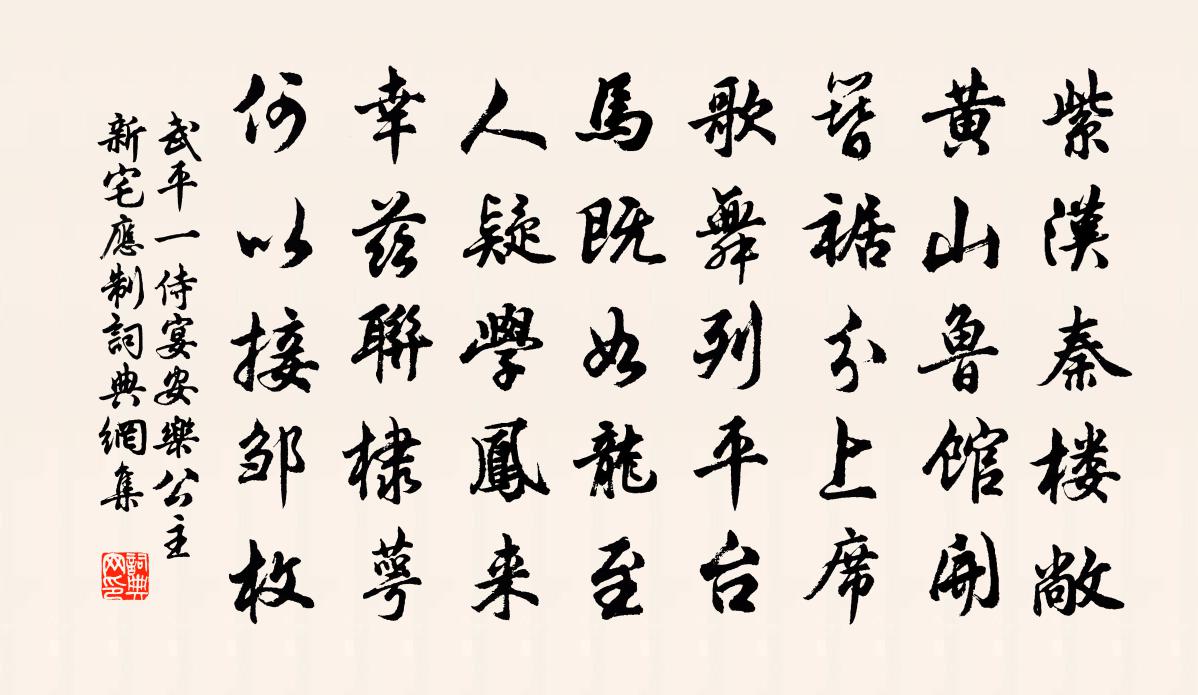 紫漢秦楼敞
黄山魯館開
簪裾分上席
歌舞列平台
馬既如龍至
人疑學鳳来
幸兹聯棣萼
何以接邹枚
武平一侍宴安樂公主
新宅應制詞典網集
詞典网印